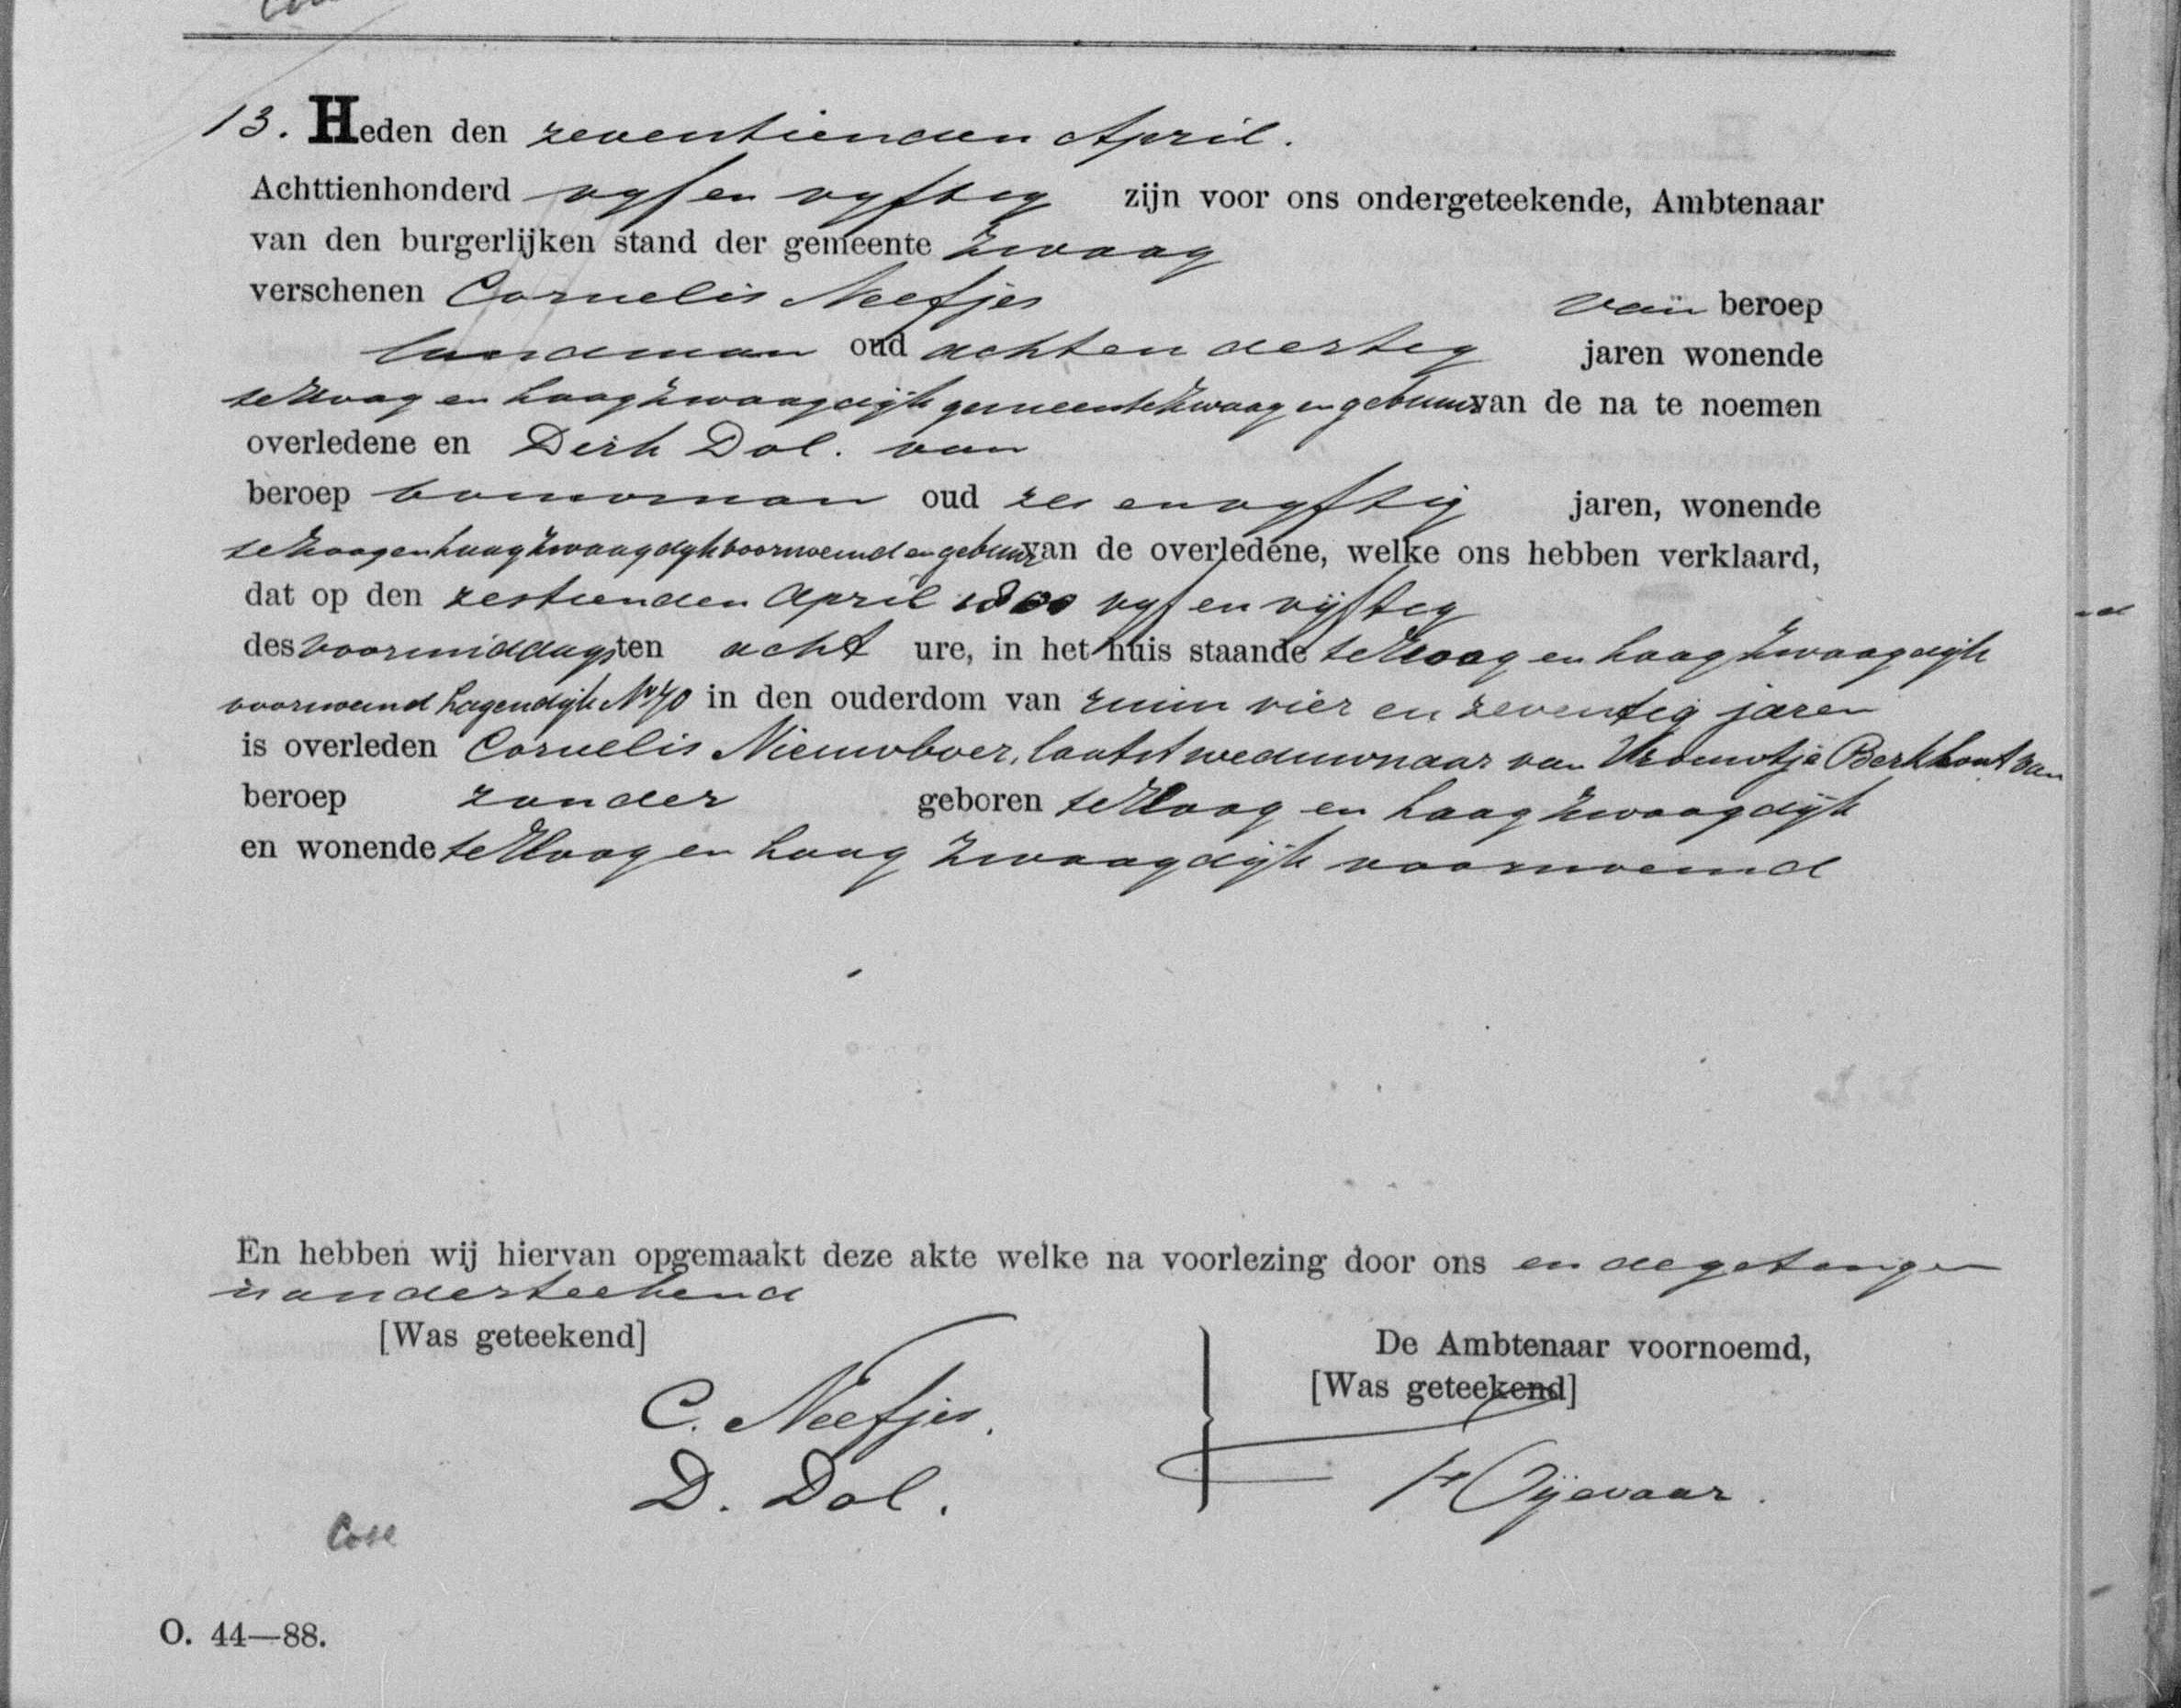 13. Heden den zeventienden April.
Achttienhonderd vyf en vyftig zijn voor ons ondergeteekende, Ambtenaar
van den burgerlijken stand der gemeente Zwaag
verschenen Cornelis Neefjes van beroep
landman oud acht en dertig jaren wonende
te Hoog en Laag Zwaagdijk gemeente Zwaag en gebuur van de na te noemen
overledene en Dirk Dol. van
beroep bouwman oud zes en vyftig jaren, wonende
te Hoog en Laag Zwaagdyk voornoemd en gebuur van de overledene, welke ons hebben verklaard,
dat op den zestienden April 1800 vyf en vijftig
des voormiddags ten acht ure, in het huis staande te Hoog en Laag Zwaagdijk
voornoemd Lagendijk No 70 in den ouderdom van ruim vier en zeventig jaren
is overleden Cornelis Nieuwboer, laatst weduwnaar van Vrouwtje Berkhout van
beroep zonder geboren te Hoog en Laag Zwaagdijk
en wonende te Hoog en Laag Zwaagdijk voornoemd
En hebben wij hiervan opgemaakt deze akte welke na voorlezing door ons en de getuigen
is onderteekend
[Was geteekend] De Ambtenaar voornoemd,
[Was geteekend]
C. Neefjes.
D. Dol.
Oijevaar.
O. 44—88.